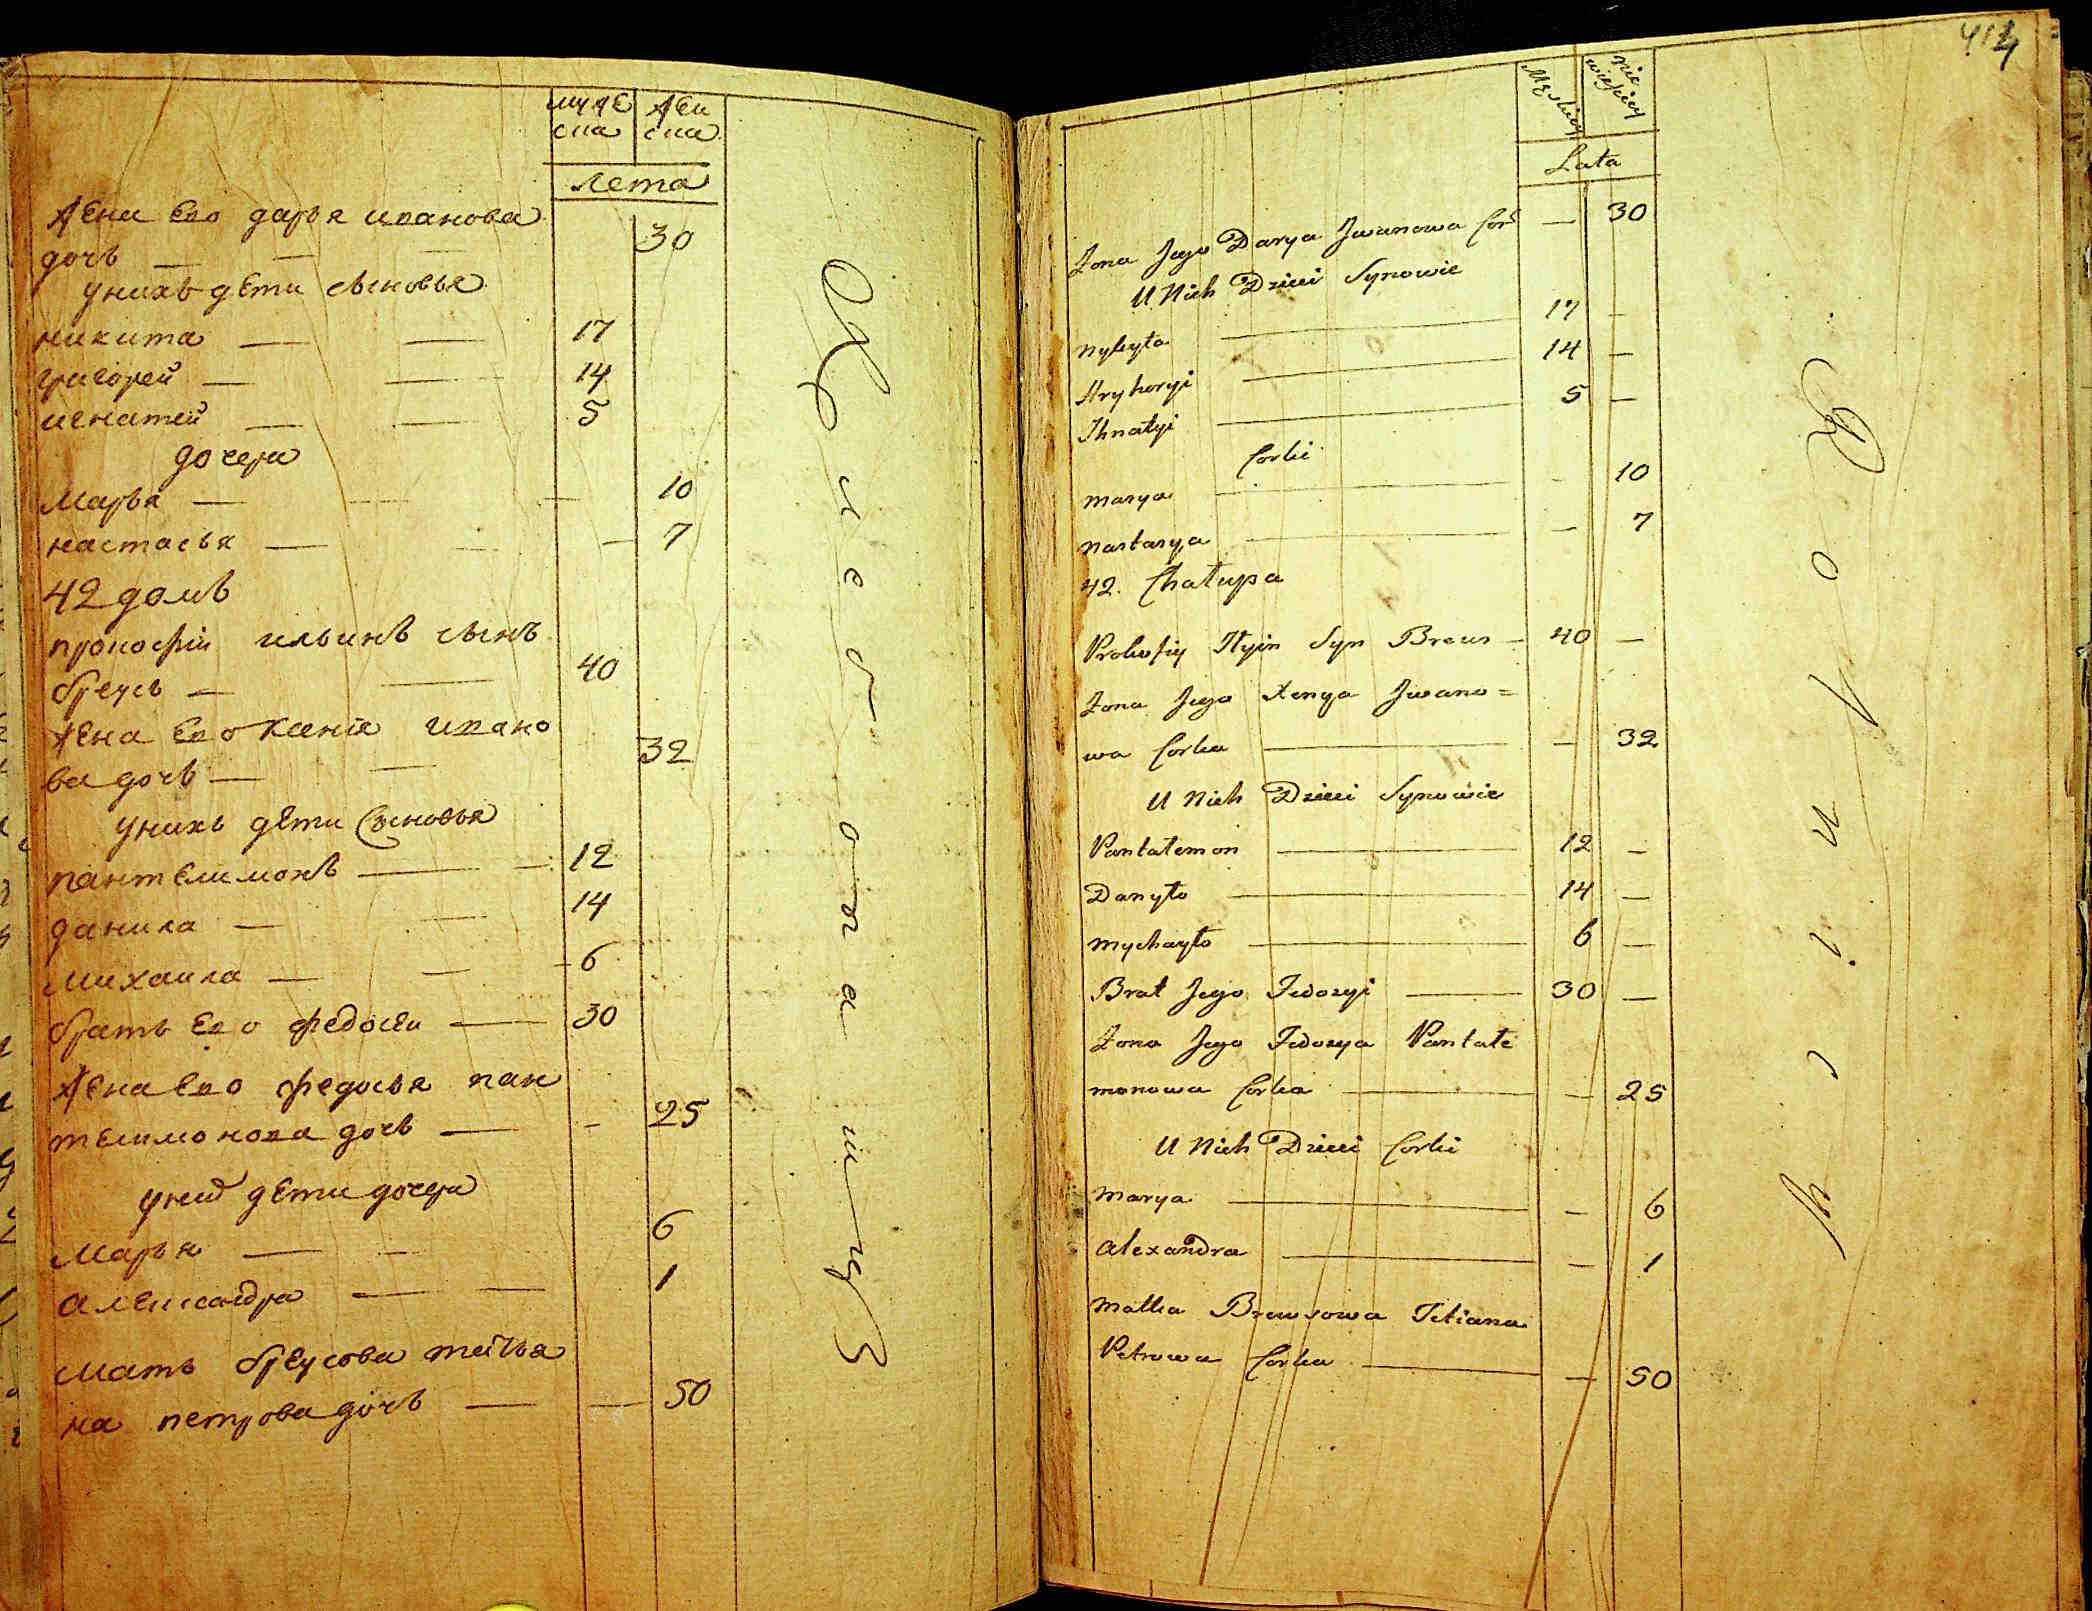 муже
ска
жен
ска
лета
жена Его дарья иванова
дочь — — — 30
унихъ дети сыновья
никита — — 17
григорей — — 14
игнатей — — 5
дочери
марья — — — 10
настасья — — — 7
42 домъ
прокофiй ильинъ сынъ
бреусь — — 40
жена Его Ксенiя ивано
ва дочь — — 32
унихъ дети Сыновья
пантелимонъ — — 12
данила — — 14
михаила — — 6
братъ Его федосей — 30
жена Его федосья пан
телимонова дочь — - 25
уний дети дочери
марья — — 6
александра — — 1
мать бреусова татья
на петрова дочь — — 50
Хлебопашцъ
414
Męskiey
nie
wieściey
Lata
Zona Jego Darya Jwanowa Cor — 30
U Nich Dzieci Synowie
Nykyta — 17 —
Hryhoryi — 14 —
Ihnatyi — 5 —
Corki
Marya — - 10
Nastasya — — 7
42. Chałupa
Prokofiy Ilyin Syn Breus — 40 —
Zona Jego Xenya Jwano=
wa Corka — — 32
U Nich Dzieci Synowie
Pantalemon — 12 —
Danyło — 14 —
Mychayło — 6 —
Brat Jego Fedosyi — 30 —
Zona Jego Fedosya Pantale
monowa Corka — — 25
U Nich Dzieci Corki
Marya — — 6
Alexandra — — 1
Matka Breusowa Tetiana
Petrowa Corka — — 50
Rolnicy